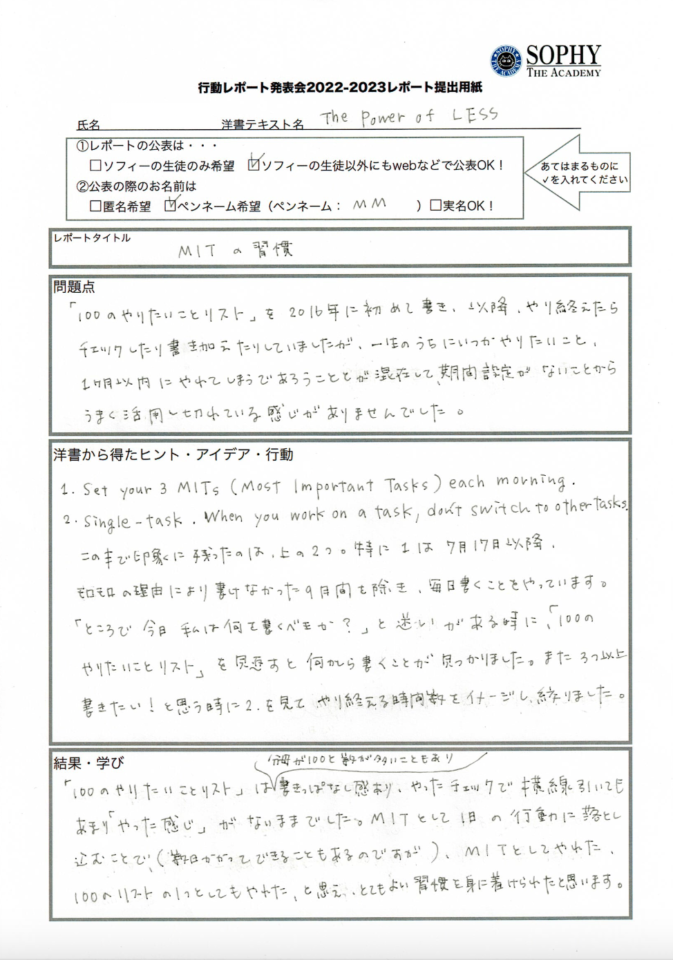 SOPHY
THE ACADEMY
行動レポート発表会2022-2023レポート提出用紙
氏名 洋書テキスト名 The Power of LESS
①レポートの公表は・・・
□ソフィーの生徒のみ希望 ☑ソフィーの生徒以外にもwebなどで公表OK!
②公表の際のお名前は
□匿名希望 ☑ペンネーム希望(ペンネーム: MM )□実名OK!
あてはまるものに
✓を入れてください
レポートタイトル
MITの習慣
問題点
「100のやりたいことリスト」を2016年に初めて書き、以降、やり終えたら
チェックしたり書き加えたりしていましたが、一生のうちにいつかやりたいこと、
1ヶ月以内にやれてしまうであろうこととが混在して、期間設定がないことから
うまく活用し切れている感じがありませんでした。
洋書から得たヒント・アイデア・行動
1. Set your 3 MITs (Most Important Tasks) each morning.
2. Single-task. When you work on a task, don't switch to other tasks.
この本で印象に残ったのは、上の2つ。特に1は7月17日以降、
モロモロの理由により書けなかった9日間を除き、毎日書くことをやっています。
「ところで今日私は何て書くべきか?」と迷いがある時に、「100の
やりたいことリスト」を見返すと何から書くことが見つかりました。また3つ以上
書きたい!と思う時に2.を見てやり終える時間数をイメージし、絞りました。
結果・学び
分母が100と数が多いこともあり
「100のやりたいことリスト」は書きっぱなし感あり、やったチェックで横線引いても
あまり「やった感じ」がないままでした。MITとして1日の行動に落とし
込むことで、(数日かかってできることもあるのですが)、MITとしてやれた、
100のリストの1つとしてもやれた、と思え、とてもよい習慣を身に着けられたと思います。